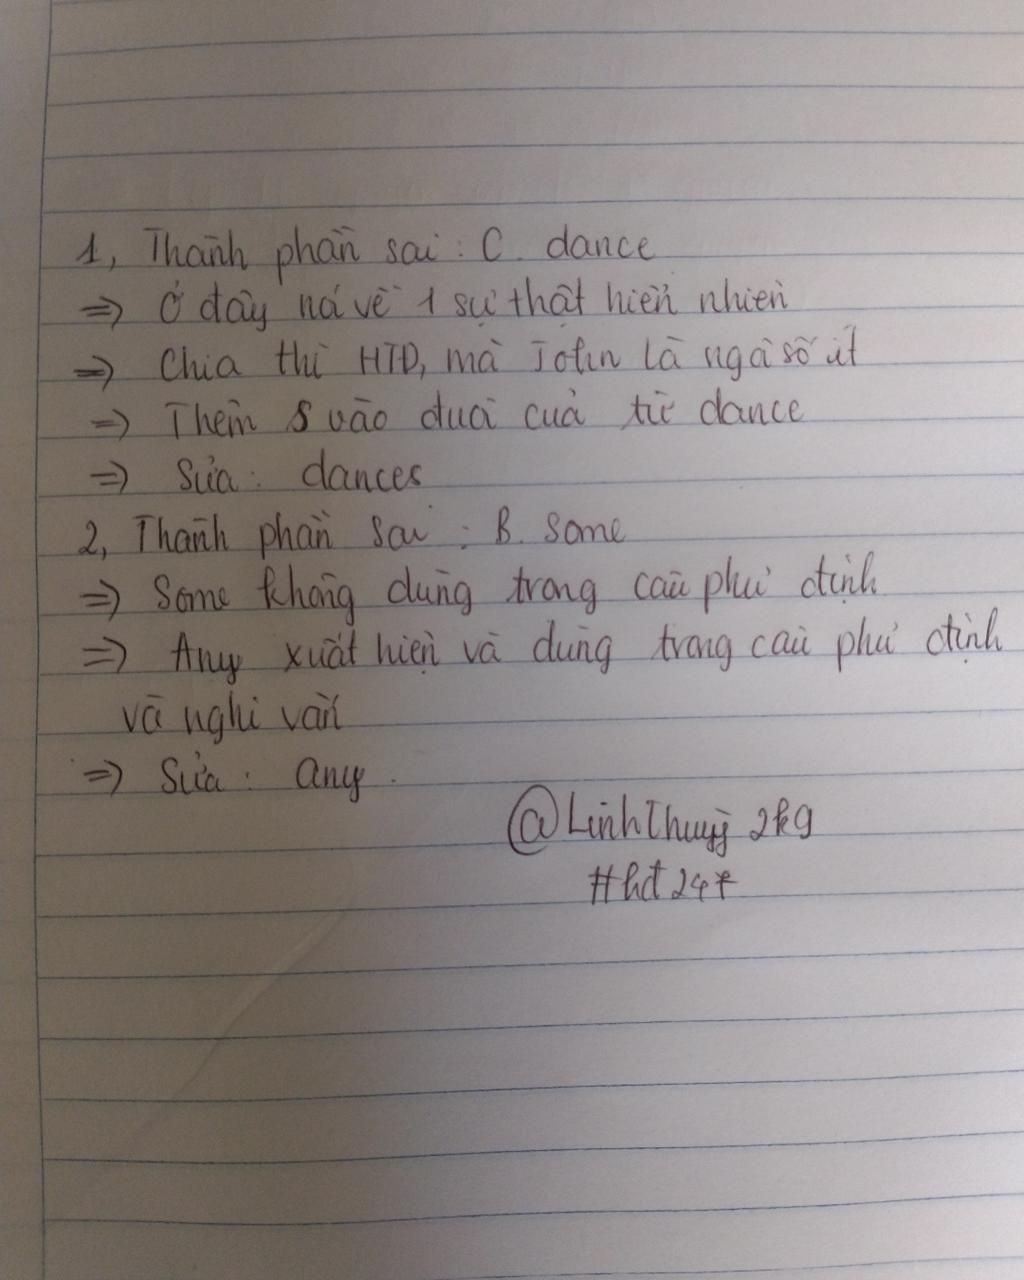 1, Thành phần sai : C. dance
=> Ở đây nói về 1 sự thật hiển nhiên
=> Chia thì HTĐ, mà John là ngôi số ít
=> Thêm s vào đuôi của từ dance
=> Sửa : dances
2, Thành phần sai : B. Some
=> Some không dùng trong câu phủ định
=> Any xuất hiện và dùng trong câu phủ định
và nghi vấn
=> Sửa : any.
@LinhThuyy 2k9
#hđ247